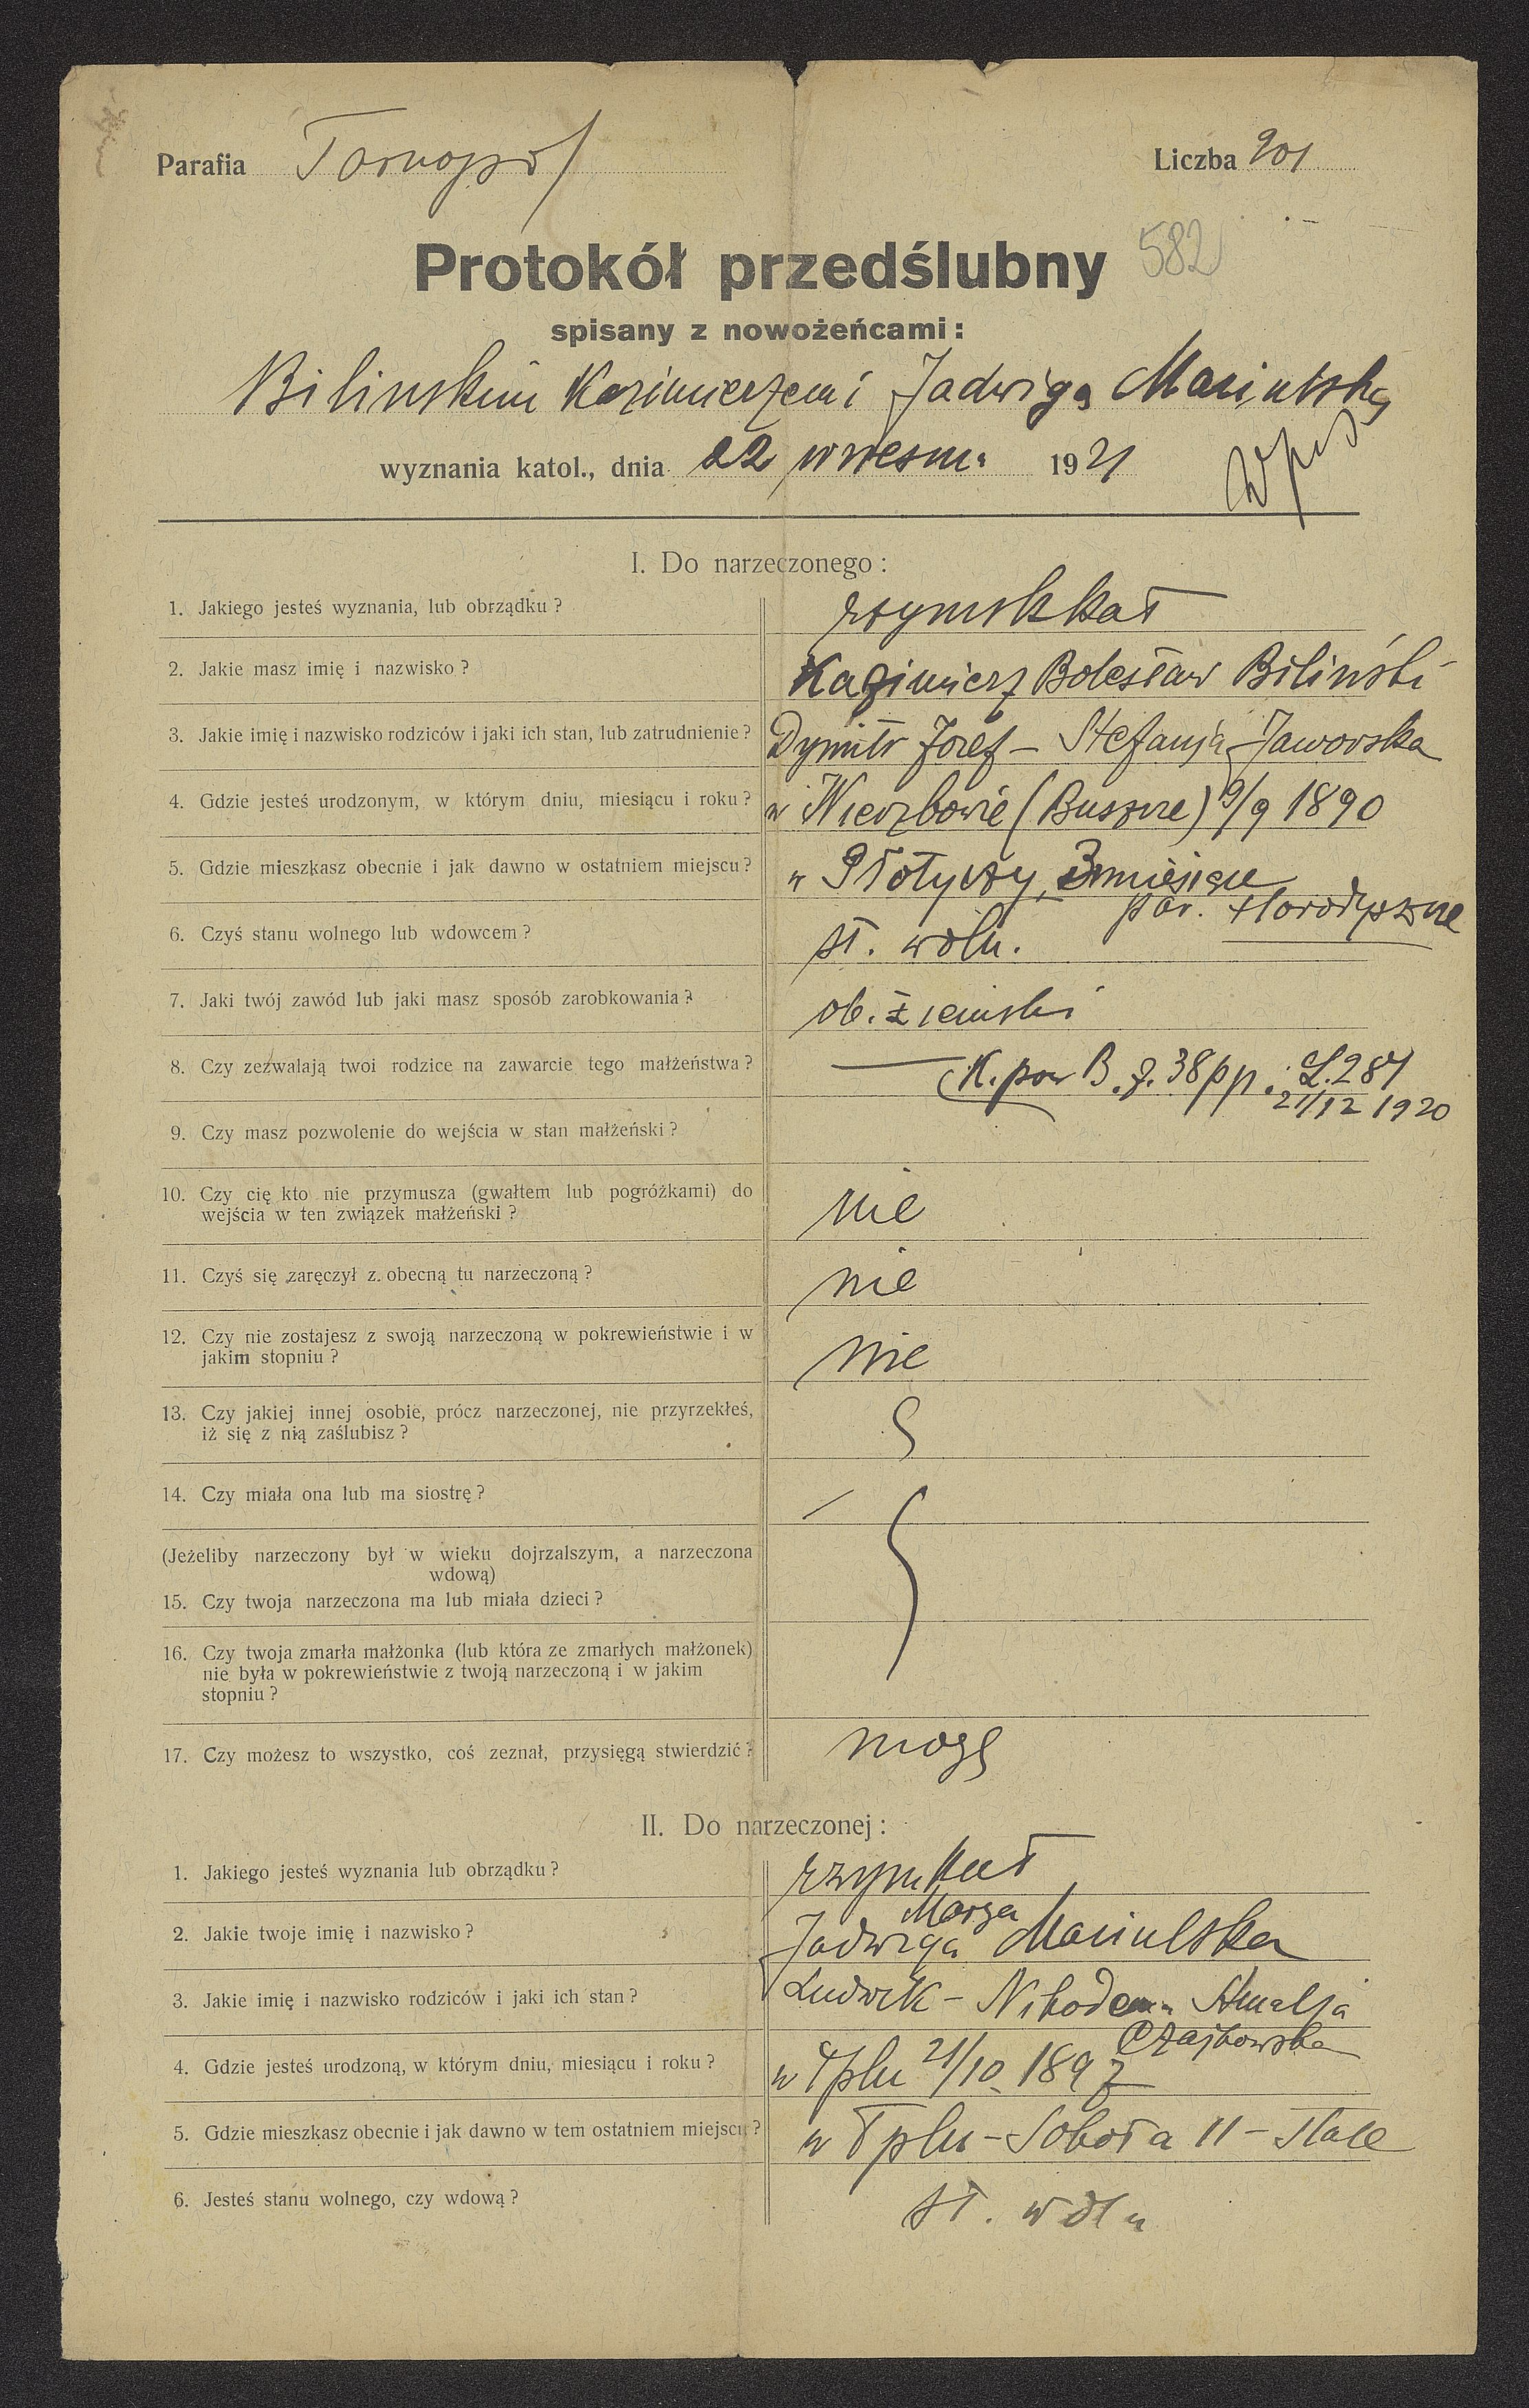 Parafia Tarnopol Liczba 201
Protokół przedślubny 582
spisany z nowożeńcami:
Bilinskim Kazimierzem i Jadwigą Maciulską
wyznania katol., dnia 22 wrzesni 1921
I. Do narzeczonego:
1. Jakiego jesteś wyznania, lub obrządku? rzymsk kat
2. Jakie masz imię i nazwisko? Kazimierz Bolesław Biliński
3. Jakie imię i nazwisko rodziców i jaki ich stan, lub zatrudnienie? Dymitr Józef – Stefanja Jaworska
4. Gdzie jesteś urodzonym, w którym dniu, miesiącu i roku? w Wierzbowie (Buszcze) 9/9 1890
5. Gdzie mieszkasz obecnie i jak dawno w ostatniem miejscu? w Płotyczy, 3 miesiące
par. Horodyszcze
6. Czyś stanu wolnego lub wdowcem? st. woln.
7. Jaki twój zawód lub jaki masz sposób zarobkowania? ob. ziemski
8. Czy zezwalają twoi rodzice na zawarcie tego małżeństwa? — K. pow B. z. 38 pp. L. 287
21/12 1920
9. Czy masz pozwolenie do wejścia w stan małżeński?
10. Czy cię kto nie przymusza (gwałtem lub pogróżkami) do
wejścia w ten związek małżeński? nie
11. Czyś się zaręczył z obecną tu narzeczoną? nie
12. Czy nie zostajesz z swoją narzeczoną w pokrewieństwie i w
jakim stopniu? nie
13. Czy jakiej innej osobie, prócz narzeczonej, nie przyrzekłeś,
iż się z nią zaślubisz?
14. Czy miała ona lub ma siostrę?
(Jeżeliby narzeczony był w wieku dojrzalszym, a narzeczona
wdową)
15. Czy twoja narzeczona ma lub miała dzieci?
16. Czy twoja zmarła małżonka (lub która ze zmarłych małżonek)
nie była w pokrewieństwie z twoją narzeczoną i w jakim
stopniu?
17. Czy możesz to wszystko, coś zeznał, przysięgą stwierdzić? mogę
II. Do narzeczonej:
1. Jakiego jesteś wyznania lub obrządku? rzym kat
Marya
2. Jakie twoje imię i nazwisko? Jadwiga Maciulska
3. Jakie imię i nazwisko rodziców i jaki ich stan? Ludwik – Nikodem Amalja
Czajkowska
4. Gdzie jesteś urodzoną, w którym dniu, miesiącu i roku? w Tplu 21/10 1897
5. Gdzie mieszkasz obecnie i jak dawno w tem ostatniem miejscu? w Tplu – Soboła 11 – stale
6. Jesteś stanu wolnego, czy wdową? st. woln